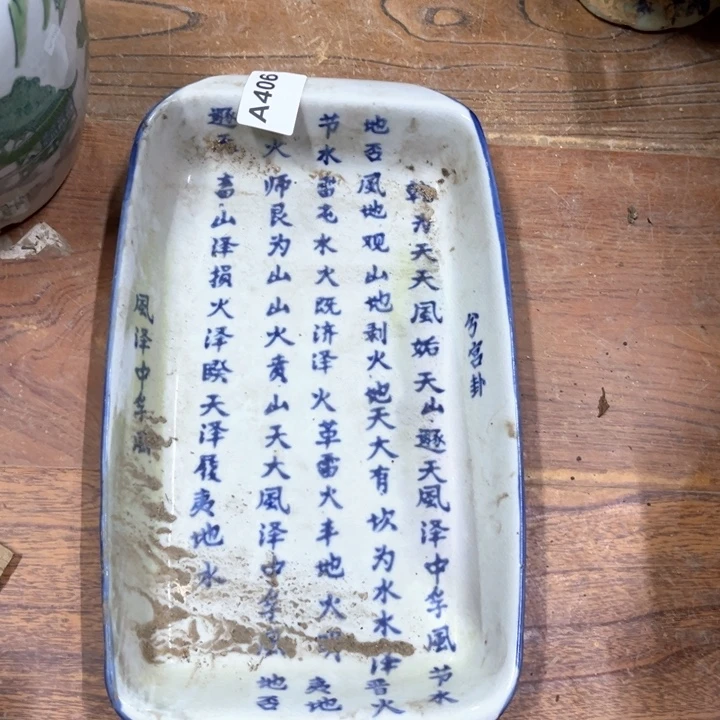 A406
兮宫卦
乾为天天風姤天山遯天風泽中孚風节水
地否風地观山地剥火地天大有坎为水水泽晋火
节水雷屯水火既济泽火革雷火丰地火明夷地
火师艮为山山火賁山天大風泽中孚風地否
遯畜山泽损火泽睽天泽履夷地水
風泽中孚風